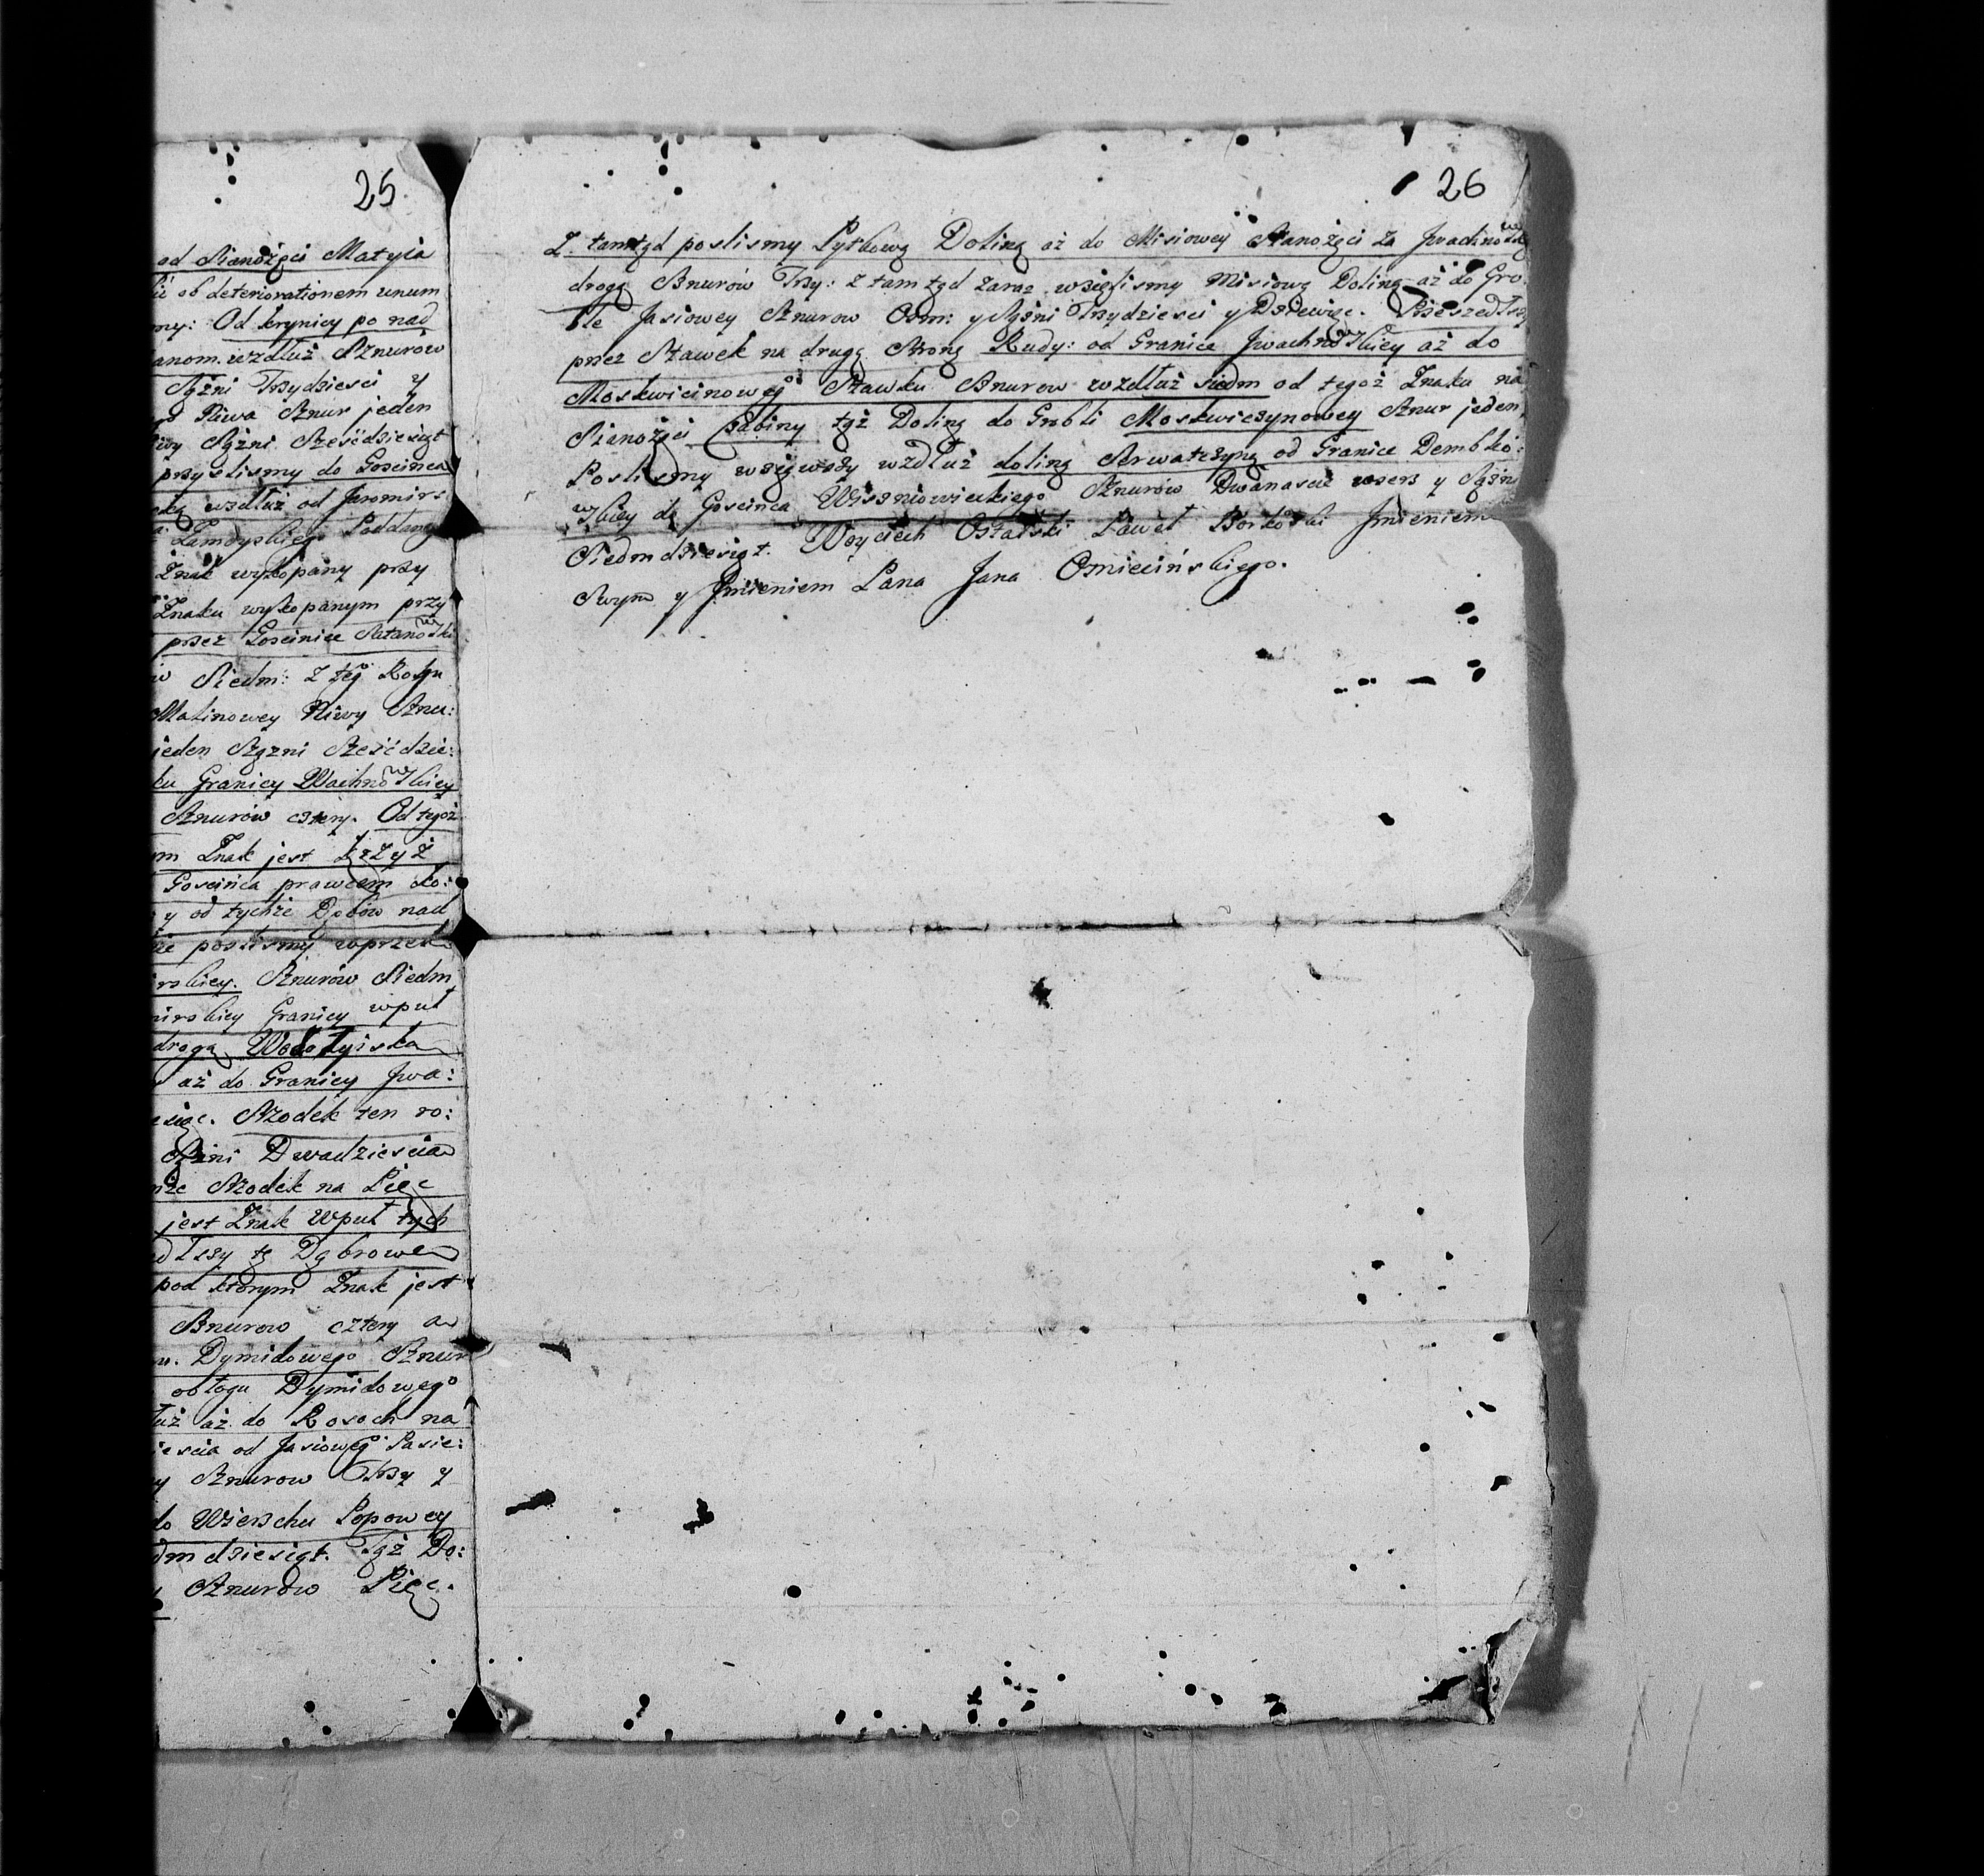 25
od Sianożęci Matyia
ob deteriorationem unum
my: Od krynicy po nad
wzdłuż Sznurow
Sążni Trzydziesci y
Niwa Sznur jeden
Sążni Szesćdziesiąt
przyslismy do Goscinca
wzdłuż od Jaromirs
Zamoyskiego Poddany
Znak wykopany przy
Znaku wykopanym przy
przez Goscinice Satanowski
Siedm: z teg° Rogu
Malinowey Niwy Sznu:
jeden Sążni Sześćdzie:
ku Granicy Wachnowskiey
Sznurów cztery. Od tegoż
m Znak jest krzyż
Goscińca prawcem do:
y od tychże Dębów nad
poslismy wprzek
irskiey. Sznurów Siedm
mirskiey Granicy wpuł
drogą Wołoczyiska
aż do Granicy Jwa:
siąc. Szodek ten ro:
Sążni Dwadziescia
Szodek na Pięc
jest Znak wpuł tych
dłszy tę Dąbrowe
pod ktorym Znak jest
Sznurow cztery a
Dymidowego Sznur
obłogu Dymidoweg°
uż aż do Rosoch na
iescia od Jasioweg° Pasie:
y Sznurow Trzy y
do Wierschu Popowey
dmdziesiąt. Tąż Do:
Sznurów Pięc.
26
Z. tamtąd poslismy Pytkową Doliną aż do Misiowey Sianożęci za Jwachnowską
drogą Sznurów Trzy: z tamtąd zaraz wzięlismy Misiową Doliną aż do Gro
ble Jasiowey Sznurow Osm: y Sążni Trzydziesci y Dziewięc. Przeszedłszy
przez Stawek na drugą Stronę Rudy: od Granice Jwachnowskiey aż do
Moskwicinoweg° Stawku Sznurow wzdłuż siedm od tegoż Znaku na
Sianożęci Sabiny tąż Doliną do Grobli Moskwiczynowey Sznur jeden
Poslismy wziąwszy wzdłuż doliną Serwatczyną od Granice Dembko:
wskiey do Goscinca Wiszniowieckiego Sznurów Dwanascie wszerz y Sążni
Siedmdziesiąt. Woyciech Paweł Borkowski Jmieniem
Swym y Jmieniem Pana Jana Omiecińskiego.